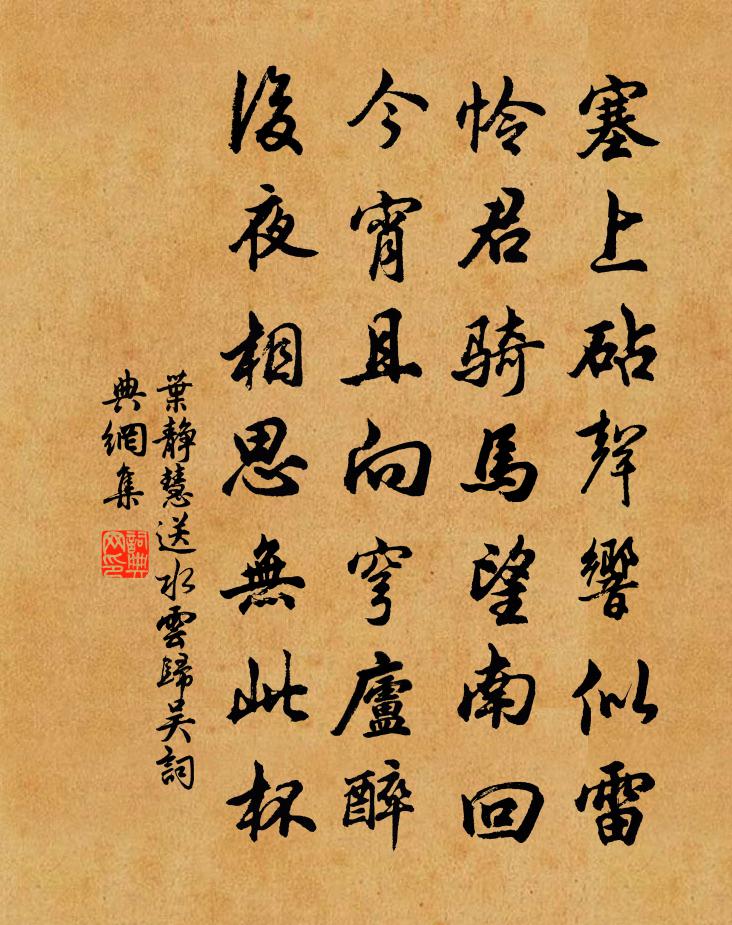 塞上砧聲響似雷
憐君騎馬望南回
今宵且向穹廬醉
後夜相思無此杯
葉靜慧送水雲歸吳詞
典網集
詞典
网印